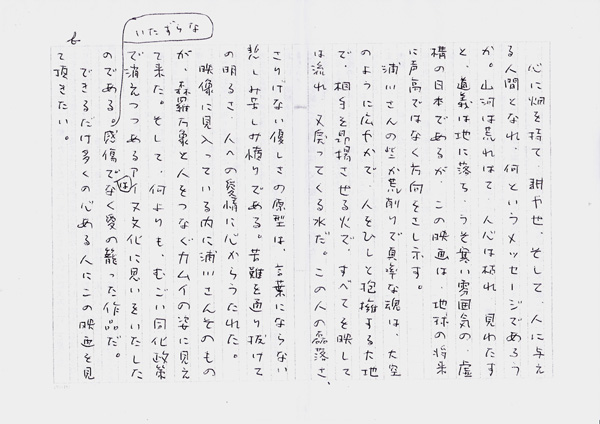 心に畑を持て、耕やせ、そして、人に与え
る人間となれ、何というメッセージであろう
か。山河は荒れはて、人心は枯れ、見わたす
と、道義は地に落ち、うそ寒い雰囲気の、虚
構の日本であるが、この映画は、地球の将来
に声高ではなく方向をさし示す。
浦川さんの 荒削りで真率な魂は、大空
のように広やかで、人をひしと抱擁する大地
で、相手を昂揚させる火で、すべてを映して
は流れ、又戻ってくる水だ。この人の磊落さ、
さりげない優しさの原型は、言葉にならない
悲しみ苦しみ憤りである。苦難を通り抜けて
の明るさ、人への愛情に心からうたれた。
映像に見入っている内に浦川さんそのもの
が、森羅万象と人をつなぐカムイの姿に見え
て来た。そして、何よりも、むごい同化政策
で消えつつあるアイヌ文化に思いをいたした
のである。感傷ではなく愛の籠った作品だ。
いたずらな
できるだけ多くの心ある人にこの映画を見
て頂きたい。